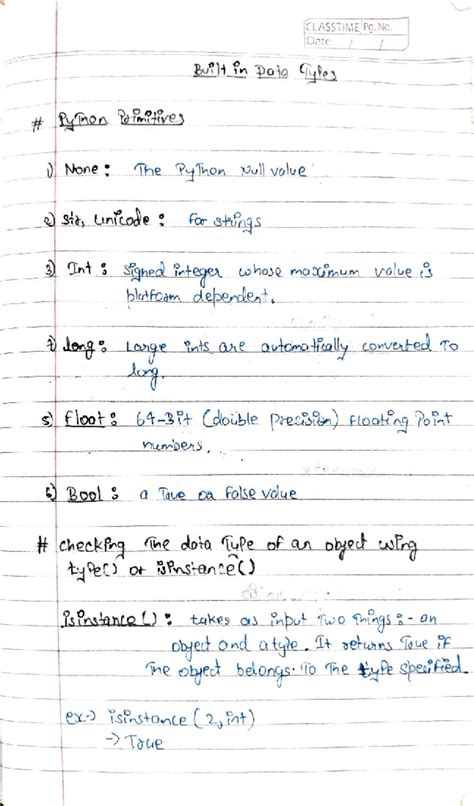 CLASSTIME Pg. No.
Date / /
Built in Data Types
# Python Primitives
1) None : The Python Null value
2) str, unicode : for strings
3) Int : signed integer whose maximum value is
platform dependent.
4) long : Large ints are automatically converted to
long.
5) float : 64-Bit (double precision) floating point
numbers.
6) Bool : a True or False value
# checking the data type of an object using
type() or isinstance()
isinstance() : takes as input two things :- an
object and a type. It returns True if
the object belongs. To the type specified.
ex-> isinstance (2, int)
-> True